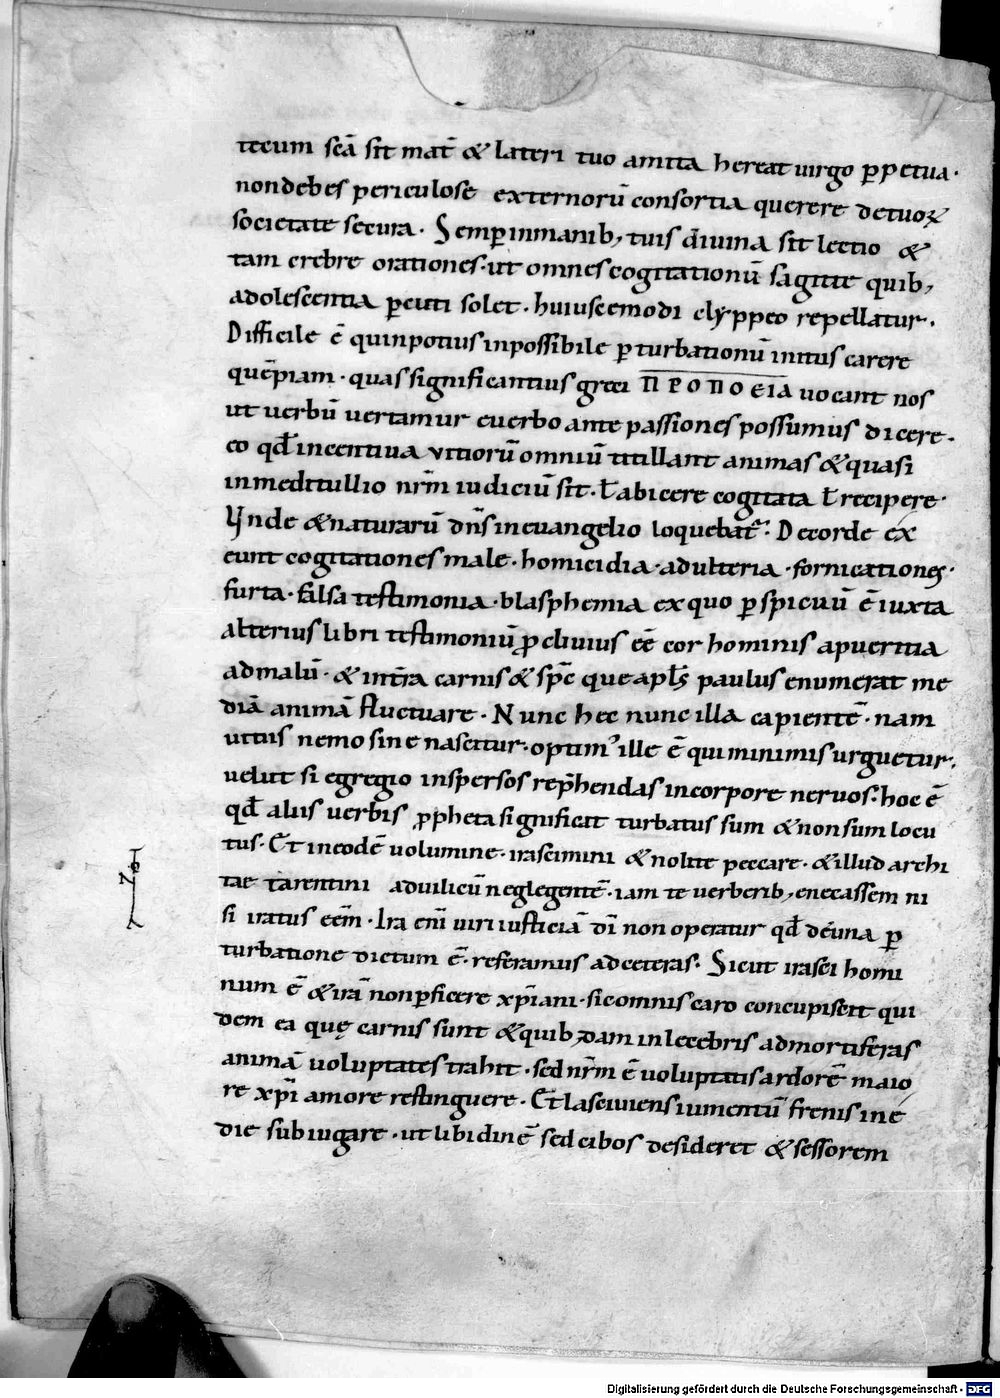 tecum scā sit mat̄ & lateri tuo amita hereat uirgo ꝑpetua·
non debes periculose externorū consortia querere de tuoꝝ
societate secura· Semꝑ in manib; tuis diuina sit lectio &
tam crebre orationes· ut omnes cogitationū sagitte quib;
adolescentia ꝑcuti solet· huiuscemodi clyppeo repellatur·
Difficile ē quin potius inpossibile ꝑturbationū initiis carere
quēpiam· quas significantius greci ΠΡΟΠΟΕΙΑ uocant nos
ut uerbū uertamur e uerbo ante passiones possumus dicere·
eo qđ incentiua vitiorū omniū titillant animas & quasi
in meditullio nrm̄ iudiciū sit· ł abicere cogitata ł recipere·
Vnde & naturarū dn̄s in euangelio loquebat᷑· De corde ex
eunt cogitationes male· homicidia· adulteria· fornicationes·
furta· falsa testimonia· blasphemia ex quo ꝑspicuū ē iuxta
alterius libri testimoniū ꝓcliuius eē cor hominis a pueritia
ad malū· & int̄ra carnis & sp̄c que apl̄s paulus enumerat me
diā animā fluctuare· Nunc hec nunc illa capientē· nam
uitiis nemo sine nascitur· optim᾿ ille ē qui minimis urguetur·
uelut si egregio inspersos rep̄hendas in corpore neruos· hoc ē
qđ aliis uerbis ꝓpheta significat turbatus sum & non sum locu
tus· Et in eodē uolumine· irascimini & nolite peccare· & illud archi
tae tarentini ad uilicū neglegentē· iam te uerberib; enecassem ni
si iratus eēm· Ira eni᷑ uiri iusticiā dī non operatur qđ de una ꝑ
turbatione dictum ē· referamus ad ceteras· Sicut irasci homi
num ē & irā non ꝑficere xp̄iani· sic omnis caro concupiscit qui
dem ea quę carnis sunt & quib;dam inlecebris ad mortiferas
animā uoluptates trahit· sed nrm̄ ē uoluptatis ardorē maio
re xp̄i amore restinguere· Et lasciuiens iumentū frenis inē
die subiugare· ut libidinē sed cibos desideret & sessorem
Digitalisierung gefördert durch die Deutsche Forschungsgemeinschaft - DFG